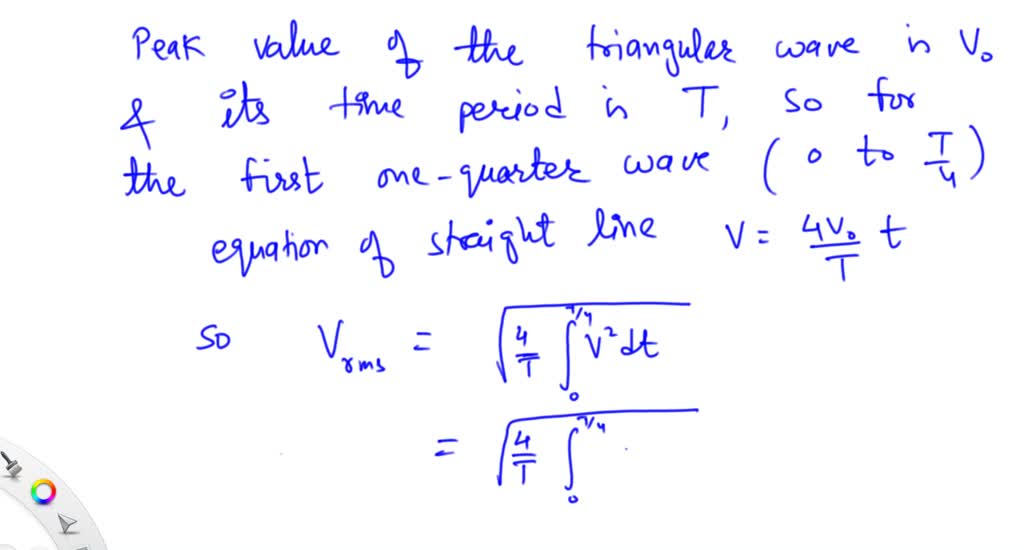 Peak value of the triangular wave is V₀
& its time period is T, so for
the first one-quarter wave (0 to T/4)
equation of straight line V = 4V₀/T t
so V_rms = √(4/T ∫₀^(T/4) V² dt)
= √(4/T ∫₀^(T/4)